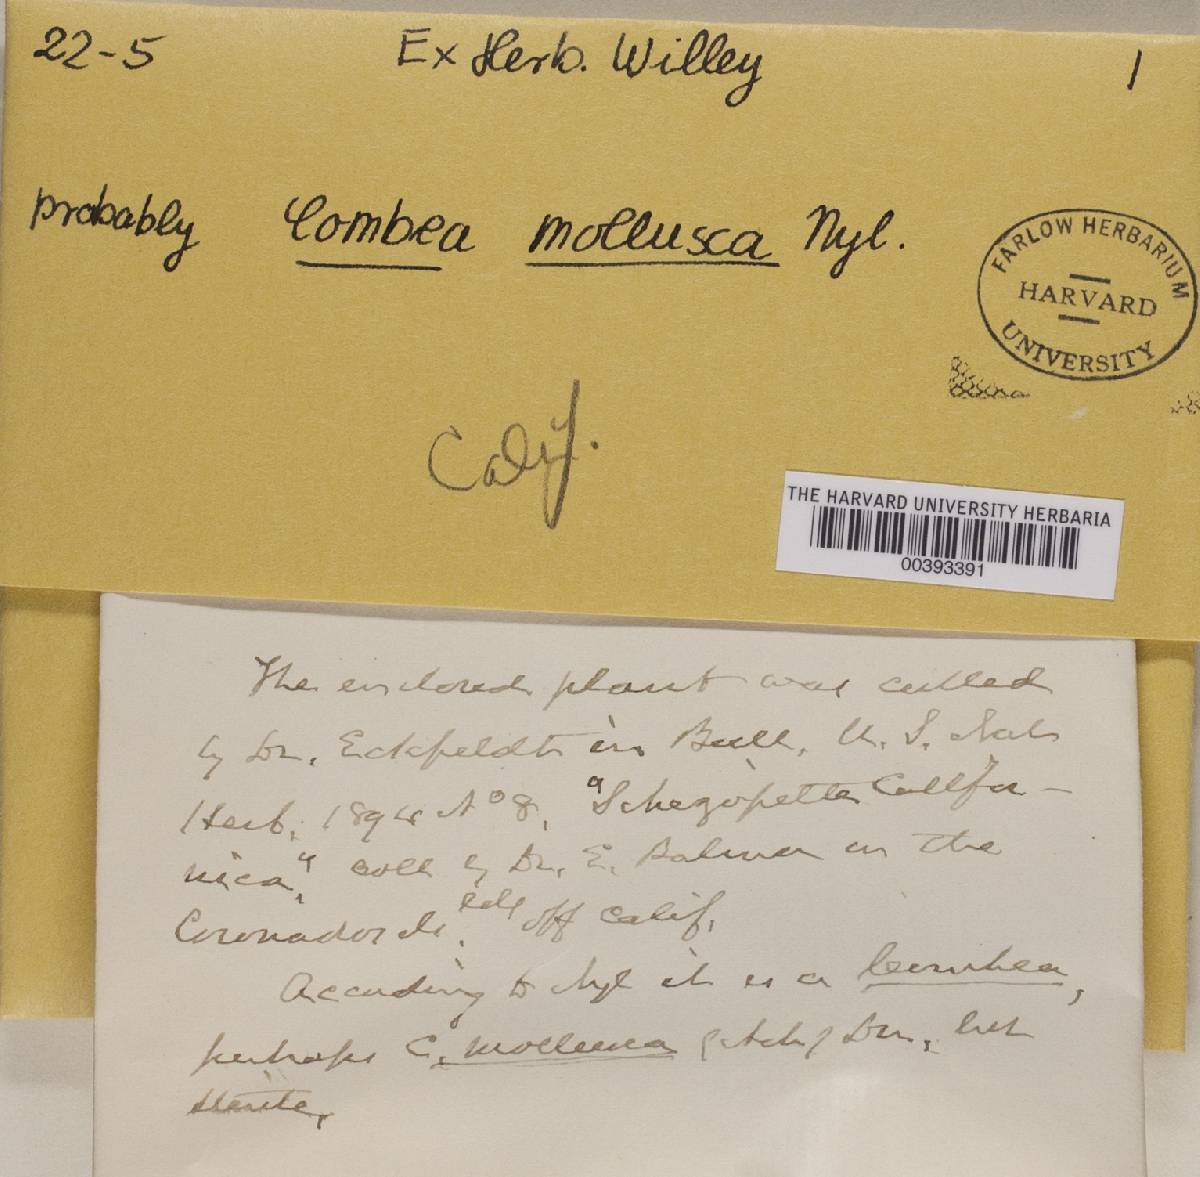 22-5 Ex Herb. Willey 1
probably Combea mollusca Nyl.
FARLOW HERBARIUM
HARVARD
UNIVERSITY
Calif.
THE HARVARD UNIVERSITY HERBARIA
00393391
The enclosed plant was called
by Dr. Eckfeldt in Bull. U. S. Nat.
Herb. 1894 No 8, "Schizopelte Califor-
nica," coll by Dr. E. Palmer on the
Coronados Is. off Calif.
According to Nyl it is a Combea,
perhaps C. mollusca (Ach) Dn., but
sterile.